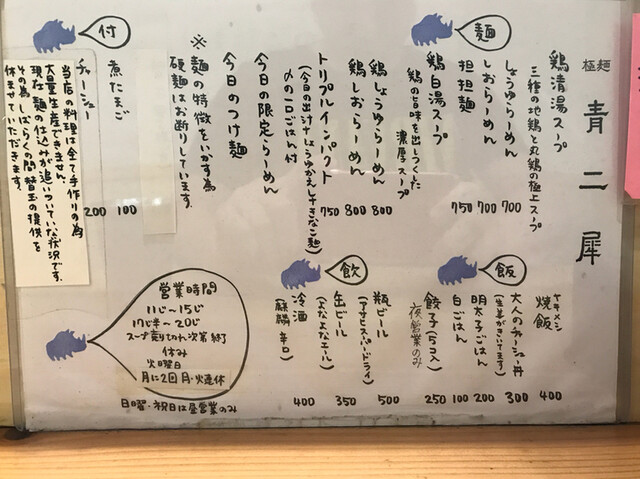 極麺 青二犀
麺
鶏清湯スープ
三種の地鶏と丸鶏の極上スープ
しょうゆらーめん 700
しおらーめん 700
担担麺 750
鶏白湯スープ
鶏の旨味を出しつくした
濃厚スープ
鶏しょうゆらーめん 800
鶏しおらーめん 800
トリプルインパクト 750
(今日の出汁+しょうゆかえし+きなこ麺)
〆の一口ごはん付
今日の限定らーめん
今日のつけ麺
※麺の特徴をいかす為
硬麺はお断りしています。
付
煮たまご 100
チャーシュー 200
当店の料理は全て手作りの為
大量生産できません。
現在 麺の仕込みが追いついていな状況です。
その為、しばらくの間 替玉の提供を
休ませていただきます。
飯
ヤキメシ
焼飯 400
大人のチャーシュー丼 300
(生姜がきいてます)
明太子ごはん 200
白ごはん 100
餃子(5コ入) 250
夜営業のみ
飲
瓶ビール 500
(アサヒスーパードライ)
缶ビール 350
(よなよなエール)
冷酒 400
(麒麟 辛口)
営業時間
11じ〜15じ
17じ半〜20じ
スープ売り切れ次第終了
休み
火曜日
月に2回 月・火連休
日曜・祝日は昼営業のみ